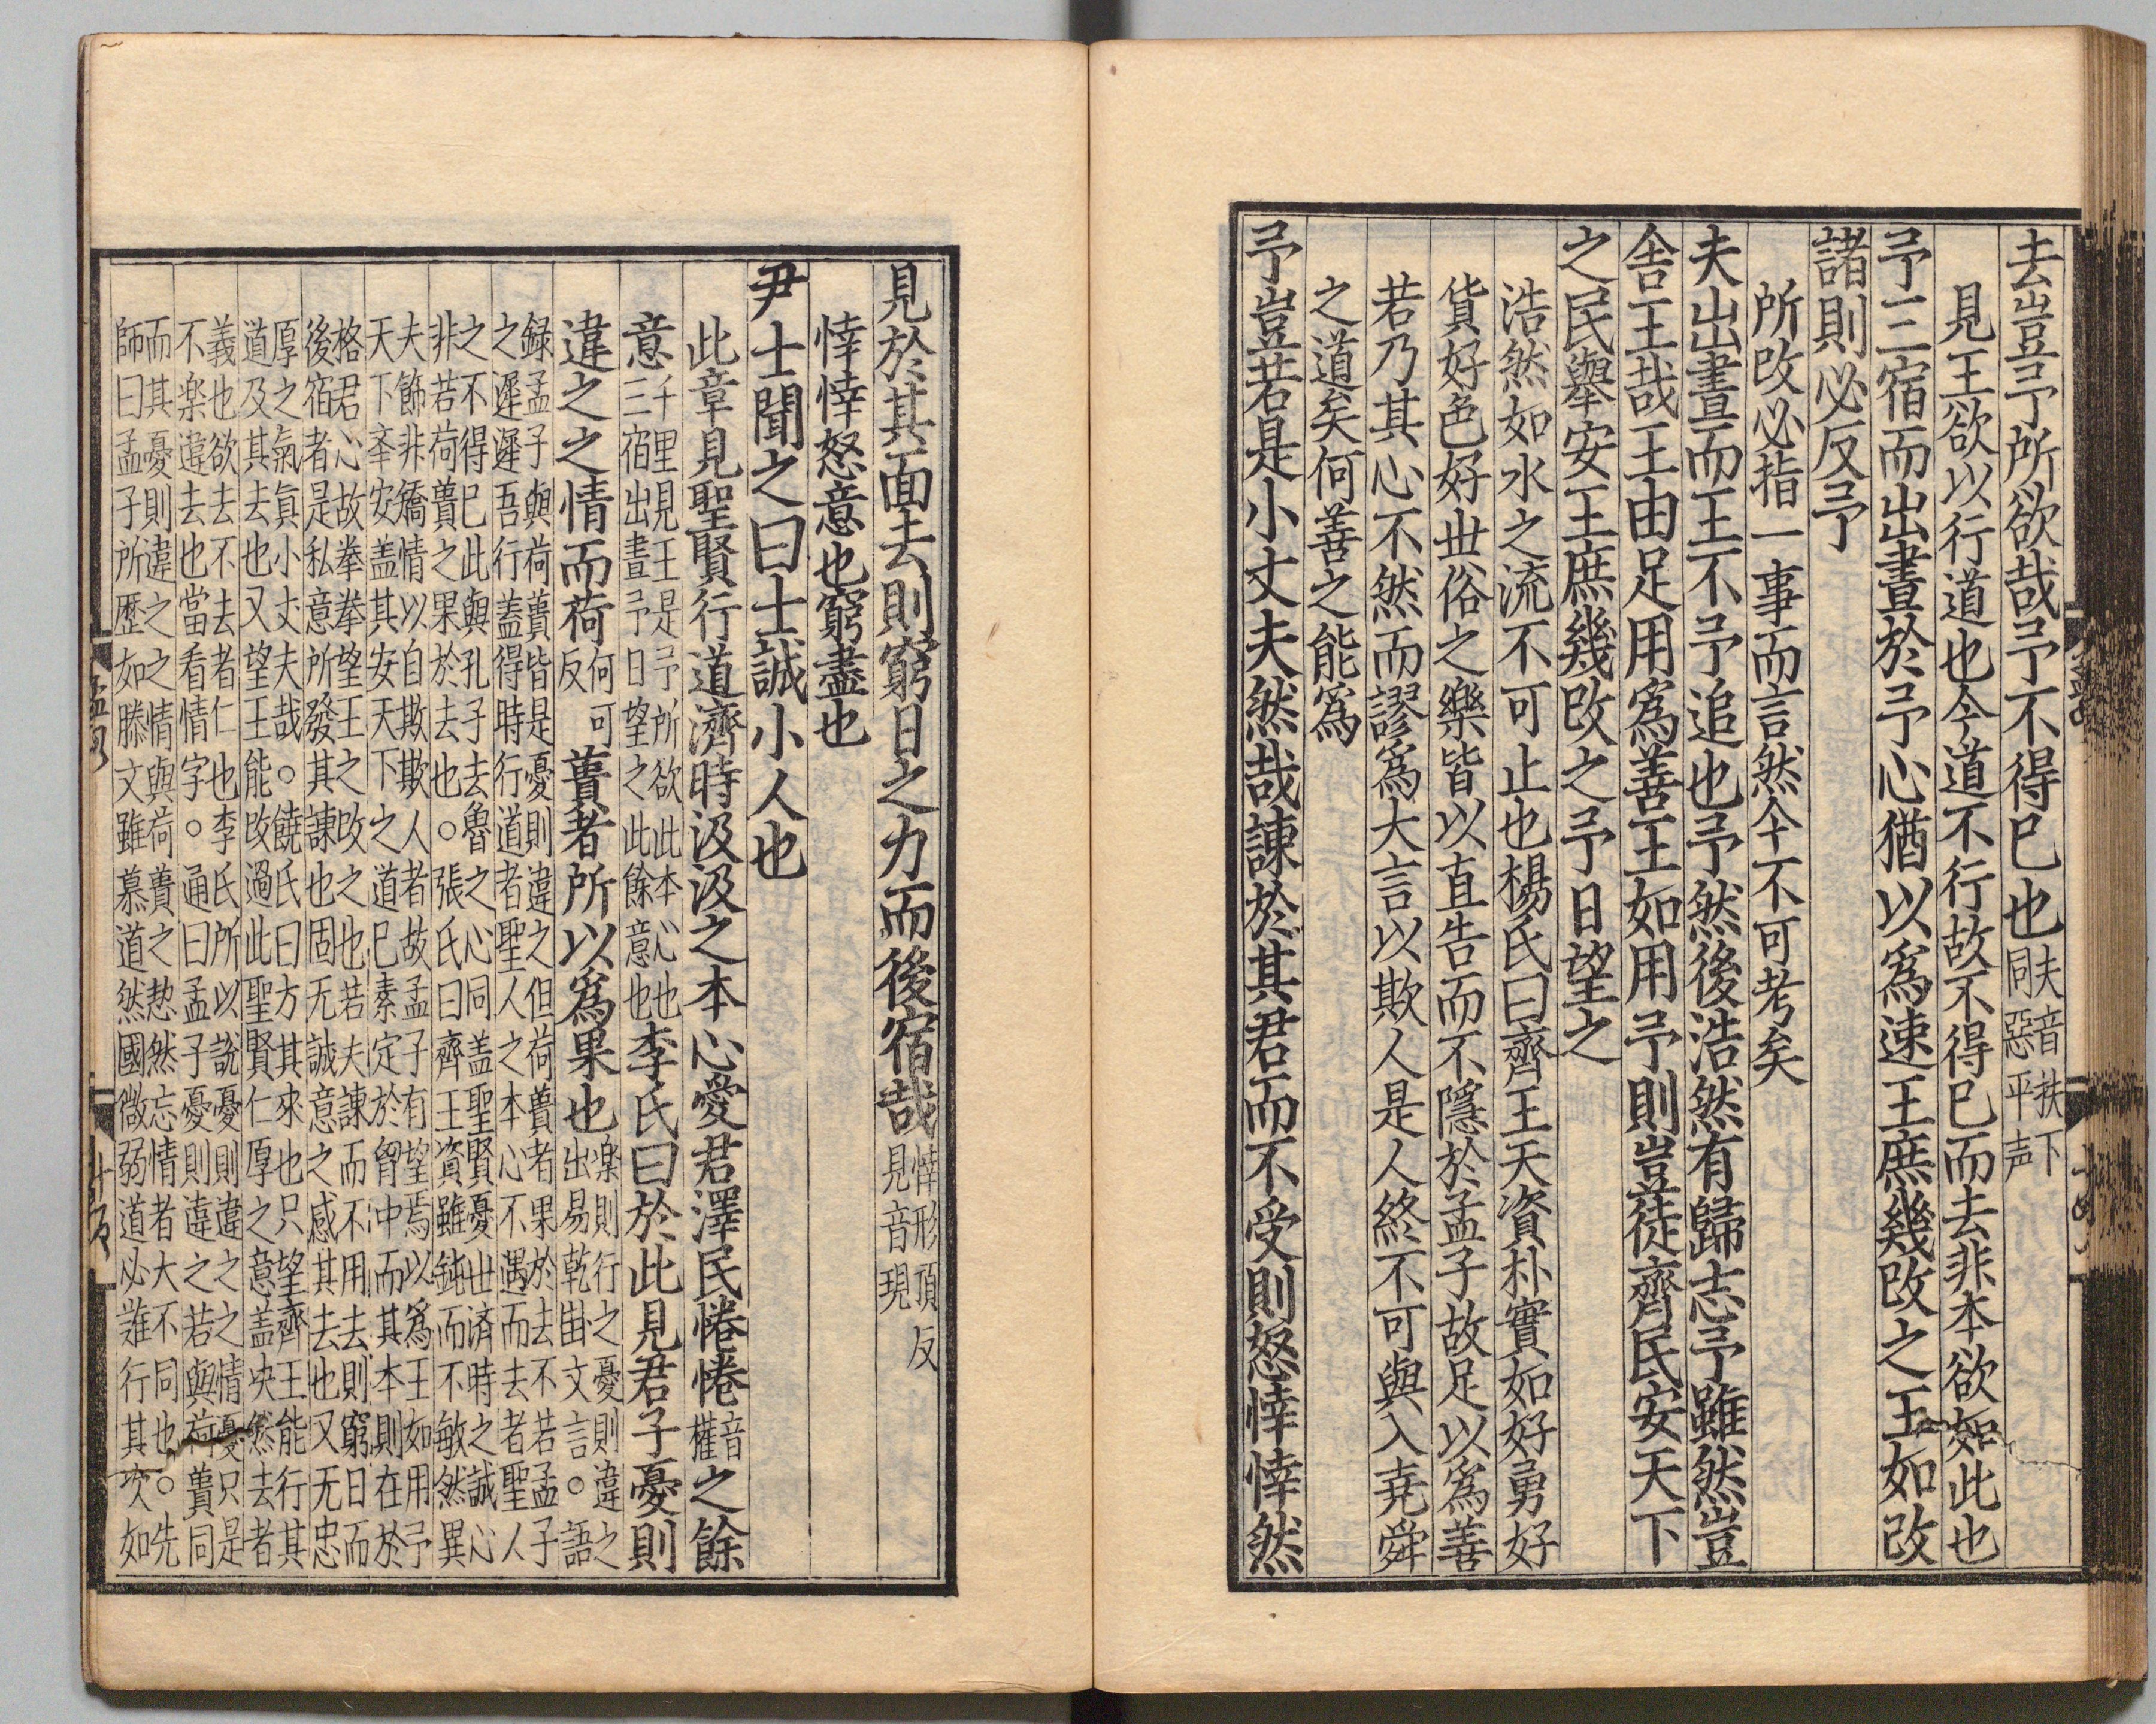 去豈予所欲哉予不得已也夫音扶下同惡平声
見王欲以行道也今道不行故不得已而去非本欲如此也
予三宿而出晝於予心猶以爲速王庶幾改之王如改
諸則必反予
所改必指一事而言然今不可考矣
夫出晝而王不予追也予然後浩然有歸志予雖然豈
舍王哉王由足用爲善王如用予則豈徒齊民安天下
之民舉安王庶幾改之予日望之
浩然如水之流不可止也楊氏曰齊王天資朴實如好勇好
貨好色好世俗之樂皆以直告而不隱於孟子故足以爲善
若乃其心不然而謬爲大言以欺人是人終不可與入堯舜
之道矣何善之能爲
予豈若是小丈夫然哉諫於其君而不受則怒悻悻然
見於其面去則窮日之力而後宿哉悻形頂反見音現
悻悻怒意也窮盡也
尹士聞之曰士誠小人也
此章見聖賢行道濟時汲汲之本心愛君澤民惓惓音權之餘
意千里見王是予所欲此本心也三宿出晝予日望之此餘意也李氏曰於此見君子憂則
違之之情而荷何可反蕢者所以爲果也楽則行之憂則違之出易乾卦文言。語
録孟子與荷蕢皆是憂則違之但荷蕢者果於去不若孟子
之遲遲吾行盖得時行道者聖人之本心不遇而去者聖人
之不得已此與孔子去魯之心同盖聖賢憂世済時之誠心
非若荷蕢之果於去也。張氏曰齊王資雖鈍而不敏然異
夫飾非矯情以自欺欺人者故孟子有望焉以爲王如用予
天下舉安盖其安天下之道已素定於胷中而其本則在於
格君心故拳拳望王之改之也若夫諫而不用去則窮日而
後宿者是私意所發其諫也固无誠意之感其去也又无忠
厚之氣真小丈夫哉。饒氏曰方其來也只望齊王能行其
道及其去也又望王能改過此聖賢仁厚之意盖决然去者
義也欲去不去者仁也李氏所以說憂則違之之情憂只是
不楽違去也當看情字。通曰孟子憂則違之若與荷蕢同
而其憂則違之之情與荷蕢之恝然忘情者大不同也。先
師曰孟子所歷如滕文雖慕道然國微弱道必難行其次如